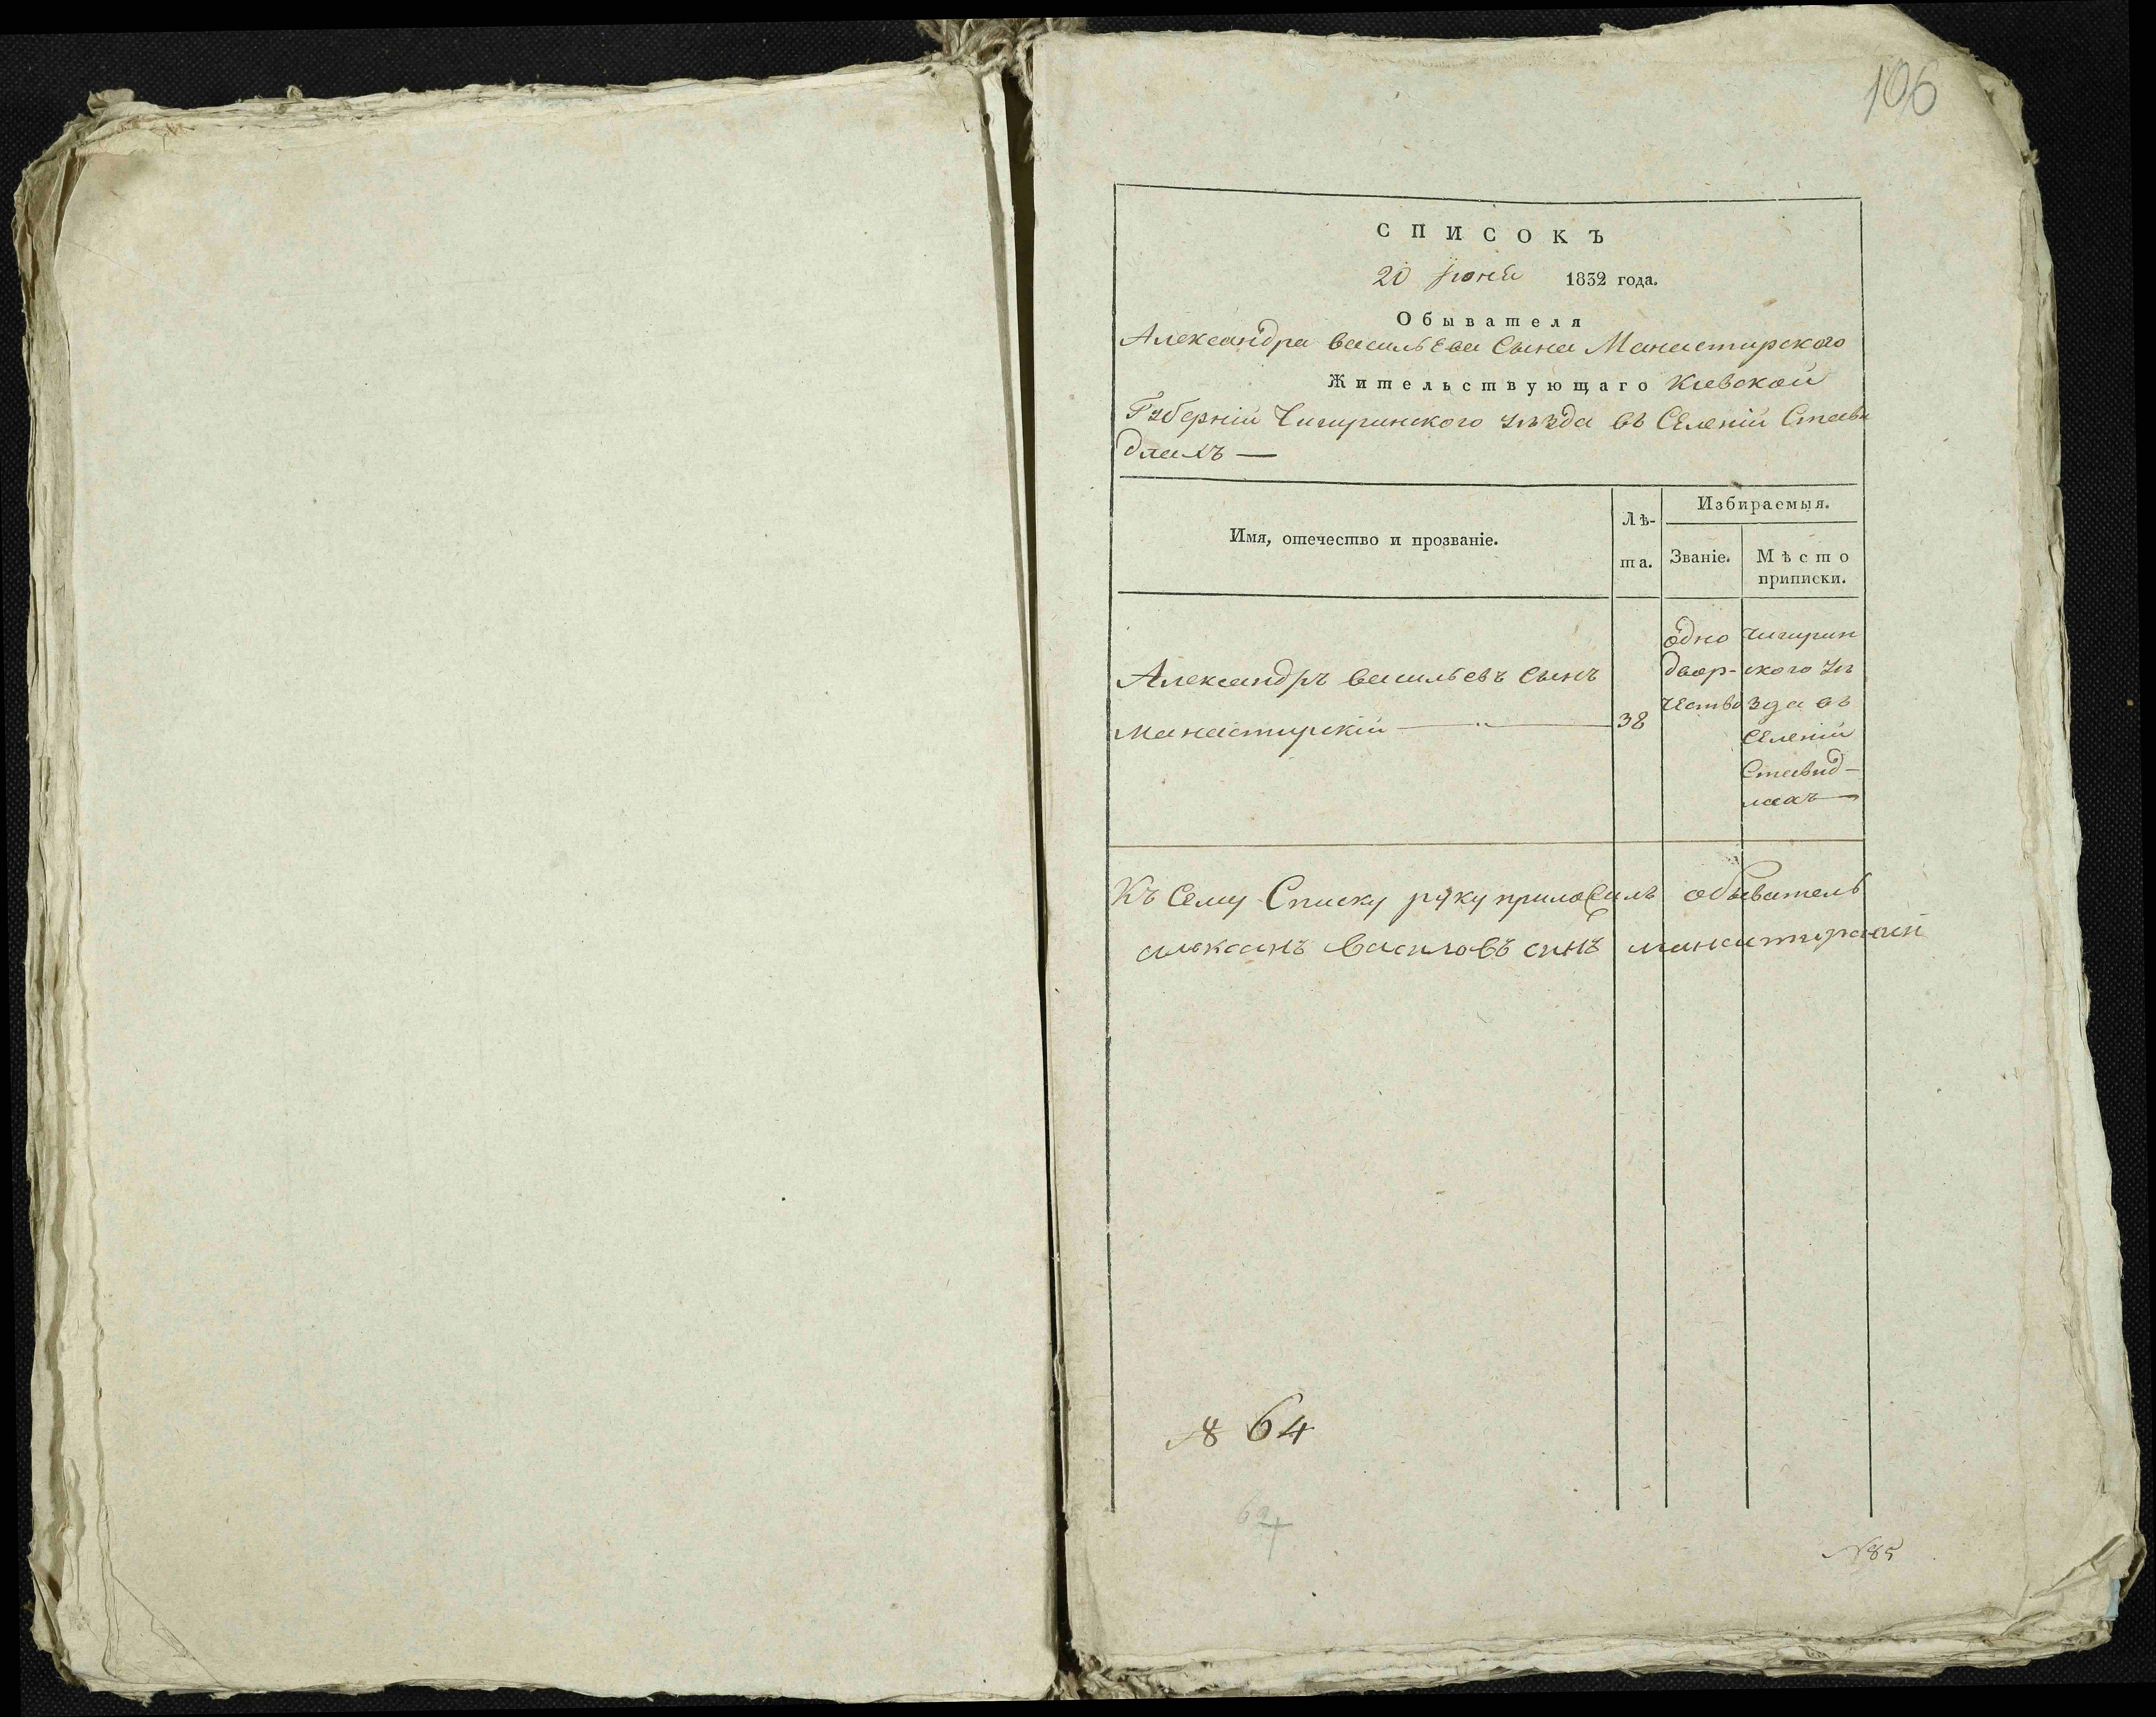 106
СПИСОКЪ
20 Іюня 1832 года.
Обывателя
Александра васильева Сына Манастирского
Жительствующаго Киевской
Губерніи Чигиринского уѣзда въ Селеніи Стави
длахъ —
Имя, отечество и прозваніе.
Лѣ-
та.
Избираемыя.
Званіе.
Мѣсто
приписки.
Александръ васильевъ Сынъ
манастирскій — " — 38
одно
двор-
чество
чигирин
ского уѣ
зда въ
Селеніи
Ставид-
лахъ —
Къ Сему Списку руку приложилъ обыватель
алексанъ Василовъ синъ манастирский
№ 64
64
№85